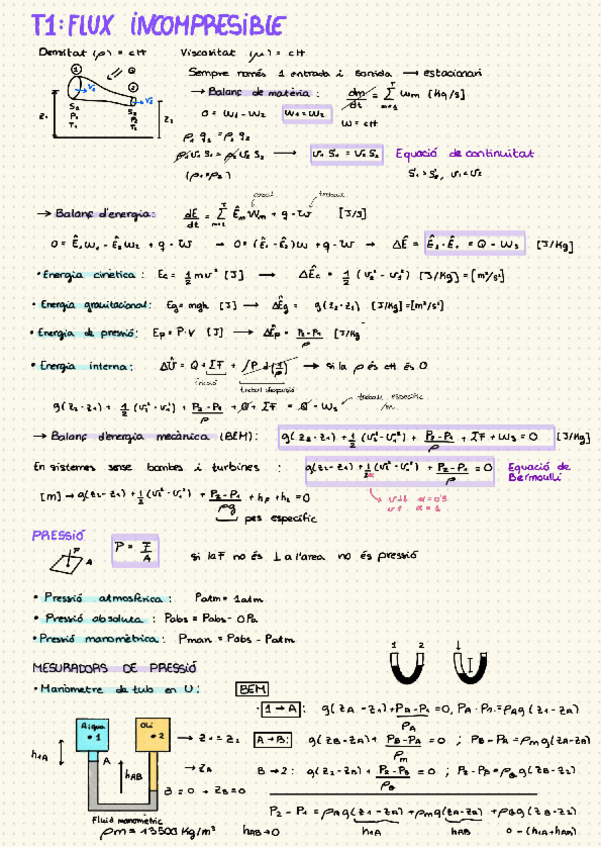 T1: FLUX INCOMPRESIBLE
Densitat (ρ) = ctt Viscositat (μ) = ctt
Sempre només 1 entrada i sortida → estacionari
→ Balanç de matèria: dm/dt = Σ wm [Kg/s]
0 = W1 - W2 W1 = W2 w = ctt
ρ1 q1 = ρ2 q2
ρ1 v1 S1 = ρ2 v2 S2 → v1 S1 = v2 S2 Equació de continuïtat
(ρ1 = ρ2)
→ Balanç d'energia: dE/dt = Σ Êm Wm + q - W [J/s]
0 = Ê1 W1 - Ê2 W2 + q - W → 0 = (Ê1 - Ê2) W + q - W → ΔÊ = Ê2 - Ê1 = Q - Ws [J/Kg]
• Energia cinètica: Ec = 1/2 m v² [J] → ΔÊc = 1/2 (v2² - v1²) [J/Kg] = [m²/s²]
• Energia gravitacional: Eg = mgh [J] → ΔÊg = g(z2 - z1) [J/Kg] = [m²/s²]
• Energia de pressió: Ep = P·V [J] → ΔÊp = P2 - P1 / ρ [J/Kg
• Energia interna: ΔÛ = Q + ΣF + ∫P d(1/ρ) → si la ρ és ctt és 0
fricció
g(z2 - z1) + 1/2 (v2² - v1²) + P2 - P1 / ρ + Q + ΣF = Q - Ws
→ Balanç d'energia mecànica (BEM): g(z2 - z1) + 1/2 (v2² - v1²) + P2 - P1 / ρ + ΣF + Ws = 0 [J/Kg]
En sistemes sense bombes i turbines: g(z2 - z1) + 1/2 (v2² - v1²) + P2 - P1 / ρ = 0 Equació de Bernoulli
[m] → g(z2 - z1) + 1/2 (v2² - v1²) + P2 - P1 / ρg + hf + hs = 0
pes específic
PRESSIÓ
P = F/A si la F no és ⊥ a l'area no és pressió
• Pressió atmosfèrica: Patm = 1 atm
• Pressió absoluta: Pabs = Pabs - 0Pa
• Pressió manomètrica: Pman = Pabs - Patm
1 2
MESURADORS DE PRESSIÓ
• Manòmetre de tub en U: BEM
1 → A: g(zA - z1) + PA - P1 / ρA = 0, PA - P1 = ρA g(z1 - zA)
Aigua • 1 Oli • 2 → z1 = z2 A → B: g(zB - zA) + PB - PA / ρm = 0 ; PB - PA = ρm g(zA - zB)
h1A A hAB → zA B → 2: g(z2 - zB) + P2 - PB / ρ0 = 0 ; P2 - PB = ρ0 g(zB - z2)
B = 0 → zB = 0
P2 - P1 = ρA g(z1 - zA) + ρm g(zA - zB) + ρ0 g(zB - z2)
Fluid manomètric
ρm = 13500 Kg/m³ hAB → 0 h1A hAB 0 - (h1A + hAB)